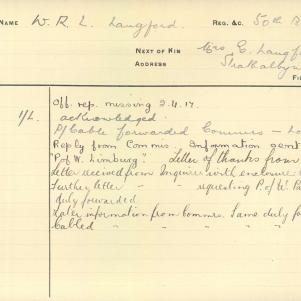 NAME W. R. L. Langford. REG. &C. 50th B
NEXT OF KIN Mrs E. Langf
ADDRESS Strathalbyn
Off. rep. missing 2.4.17.
1/L. acknowledged.
P/Cable forwarded Commrs - Lo
Reply from Commrs. Information sent
"P of W. Limburg". Letter of thanks from
Letter received from Inquirer with enclosure
Further letter " " requesting P. of W. P
duly forwarded.
Later information from Commrs. Same duly fo
Cabled " "